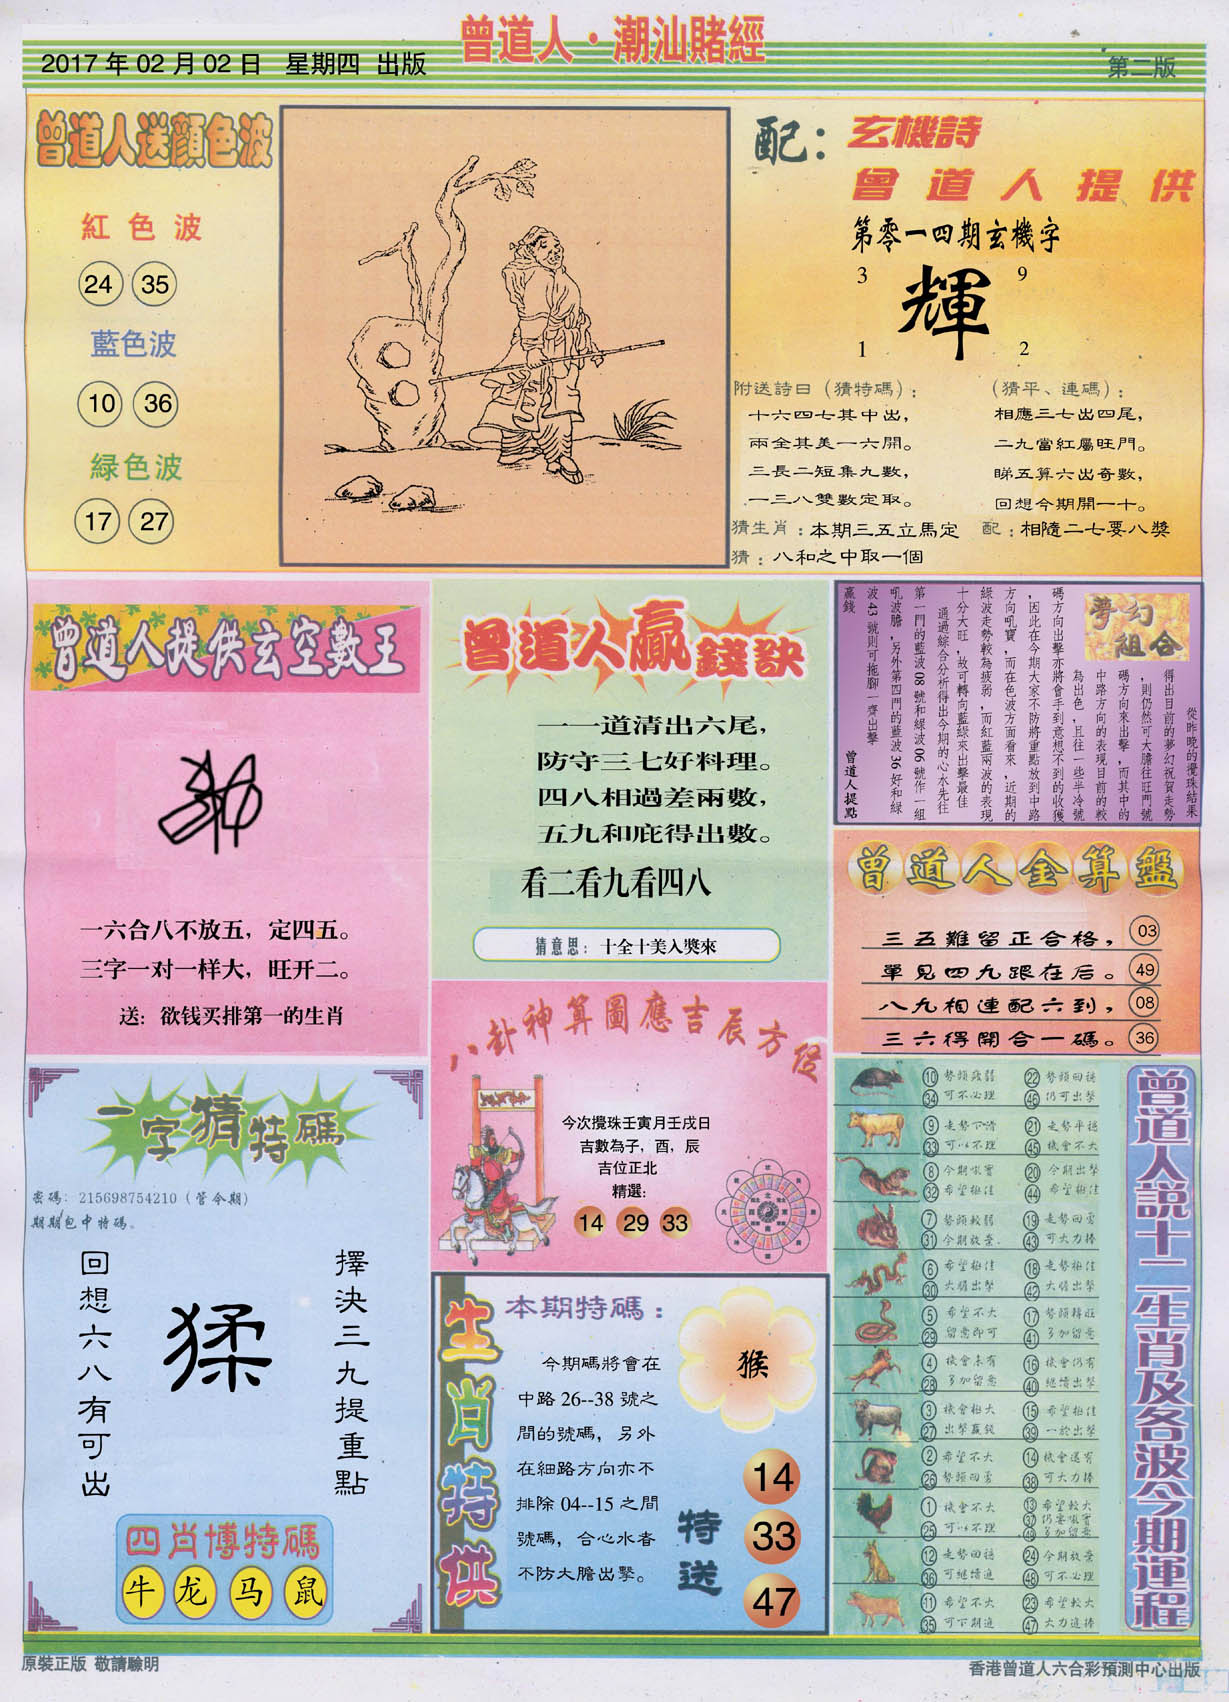 曾道人·潮汕賭經
2017年02月02日 星期四 出版
第二版
曾道人送顏色波
紅色波
24 35
藍色波
10 36
緑色波
17 27
配：玄機詩
曾道人提供
第零一四期玄機字
3 9
輝
1 2
附送詩曰（猜特碼）：
十六四七其中出，
兩全其美一六開。
三長二短集九數，
一三八雙數定取。
（猜平、連碼）：
相應三七出四尾，
二九當紅屬旺門。
睇五算六出奇數，
回想今期開一十。
猜生肖：本期三五立馬定
配：相隨二七要八獎
猜：八和之中取一個
曾道人提供玄空數王
一六合八不放五，定四五。
三字一对一样大，旺开二。
送：欲钱买排第一的生肖
曾道人贏錢訣
一一道清出六尾，
防守三七好料理。
四八相過差兩數，
五九和庇得出數。
看二看九看四八
猜意思：十全十美入獎來
夢幻
組合
從昨晚的攪珠結果
得出目前的夢幻祝賀走勢
，則仍然可大膽往旺門號
碼方向來出擊，而其中的
中路方向的表現目前的較
為出色，且往一些半冷號
碼方向出擊亦將會手到意想不到的收獲
，因此在今期大家不防將重點放到中路
方向吼寶，而在色波方面看來，近期的
綠波走勢較為疲弱，而紅藍兩波的表現
十分大旺，故可轉向藍綠來出擊最佳
通過綜合分析得出今期的心水先往
第一門的藍波08號和綠波06號作一組
吼波膽，另外第四門的藍波36好和綠
波43號則可拖腳一齊出擊
贏錢
曾道人提點
曾道人金算盤
三五難留正合格，03
單見四九跟在后。49
八九相連配六到，08
三六得開合一碼。36
八卦神算圖應吉辰方位
今次攪珠壬寅月壬戌日
吉數為子，酉，辰
吉位正北
精選：
14 29 33
一字猜特碼
密碼：215698754210（管今期）
期期包中特碼。
擇決三九提重點
猱
回想六八有可出
四肖博特碼
牛 龙 马 鼠
生肖特供
本期特碼：
今期碼將會在
中路26--38號之
間的號碼，另外
在細路方向亦不
排除04--15之間
號碼，合心水者
不防大膽出擊。
猴
特送
14
33
47
曾道人說十二生肖及各波今期運程
10 勢頭疲弱 22 勢頭回穩
34 可不必理 46 仍可出擊
9 走勢下滑 21 走勢平穩
33 可以不理 45 機會不大
8 今期吼寶 20 今期出擊
32 希望極佳 44 希望極佳
7 勢頭較弱 19 走勢回勇
31 今期放棄. 43 可大力捧
6 希望極佳 18 走勢極佳
30 大膽出擊 42 大膽出擊
5 希望不大 17 勢頭轉旺
29 留意即可 41 多加留意
4 機會未有 16 機會仍有
28 多加留意 40 繼續出擊
3 機會極大 15 希望極佳
27 出擊贏錢 39 一於出擊
2 希望不大 14 機會還有
26 勢頭回勇 38 可大力捧
1 機會不大 13 希望較大
25 可以不理 37 仍要吼寶
49 多加留意
12 走勢回穩 24 今期放棄
36 可繼續追 48 可不必理
11 希望不大 23 希望較大
35 可下期追 47 大力追捧
原裝正版 敬請驗明
香港曾道人六合彩預測中心出版